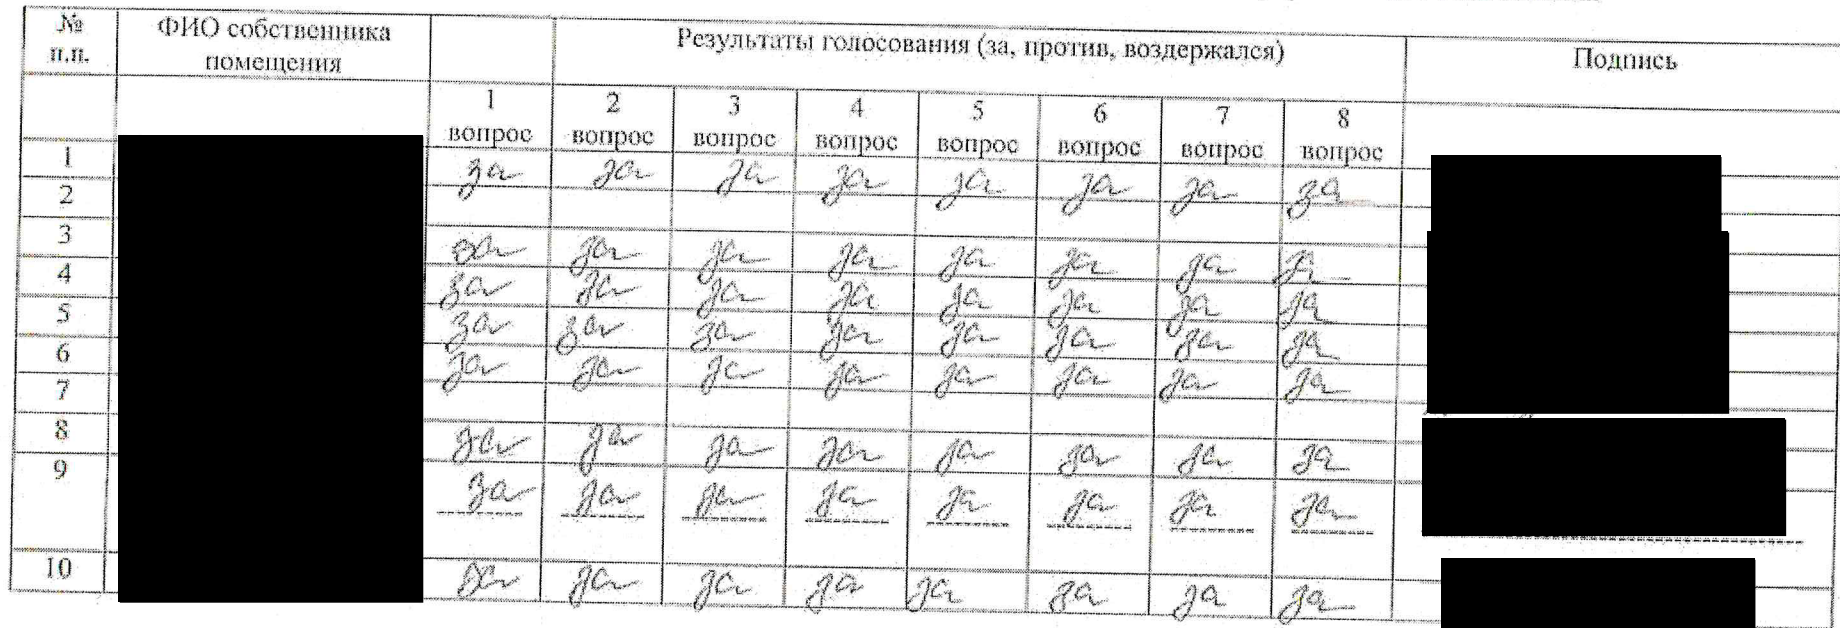 № ФИО собственника Результаты голосования (за, против, воздержался) Подпись
п.п. помещения
1 2 3 4 5 6 7 8
вопрос вопрос вопрос вопрос вопрос вопрос вопрос вопрос
1 за за за за за за за за
2
3 за за за за за за за за
4 за за за за за за за за
5 за за за за за за за за
6 за за за за за за за за
7
8 за за за за за за за за
9 за за за за за за за за
10 за за за за за за за за